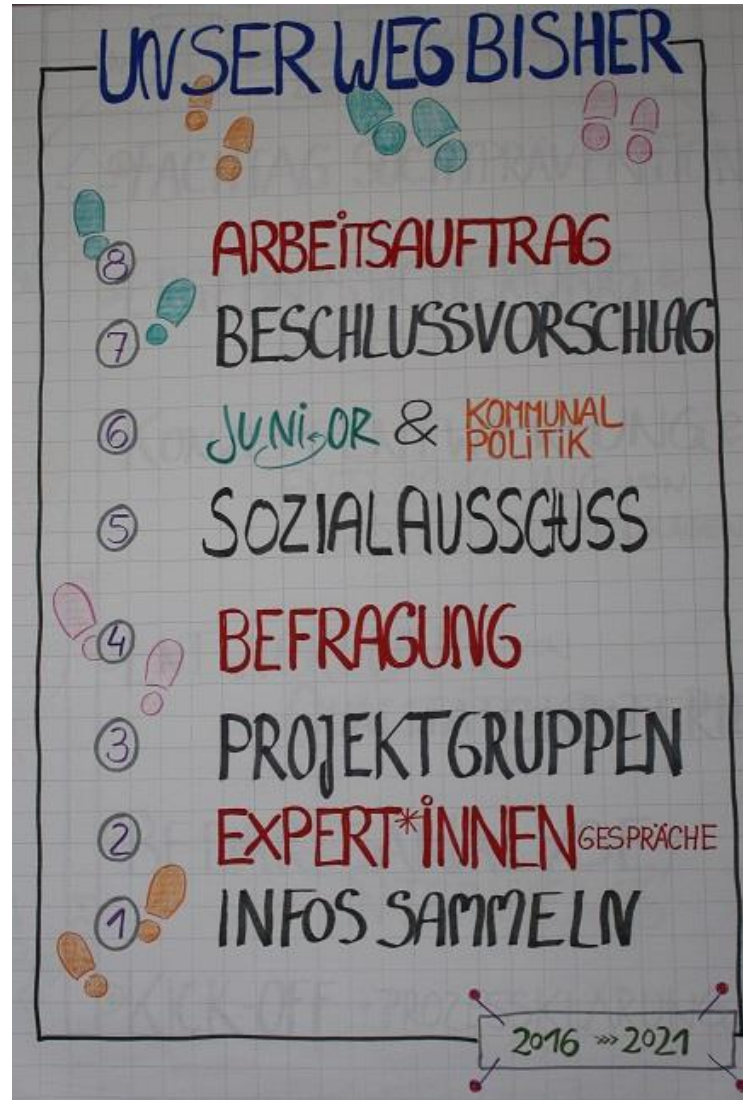 UNSER WEG BISHER
8 ARBEITSAUFTRAG
7 BESCHLUSSVORSCHLAG
6 JUNiOR & KOMMUNAL
POLiTiK
5 SOZIALAUSSCHUSS
4 BEFRAGUNG
3 PROJEKTGRUPPEN
2 EXPERT*iNNEN GESPRÄCHE
1 INFOS SAMMELN
KICK-OFF
2016 »» 2021